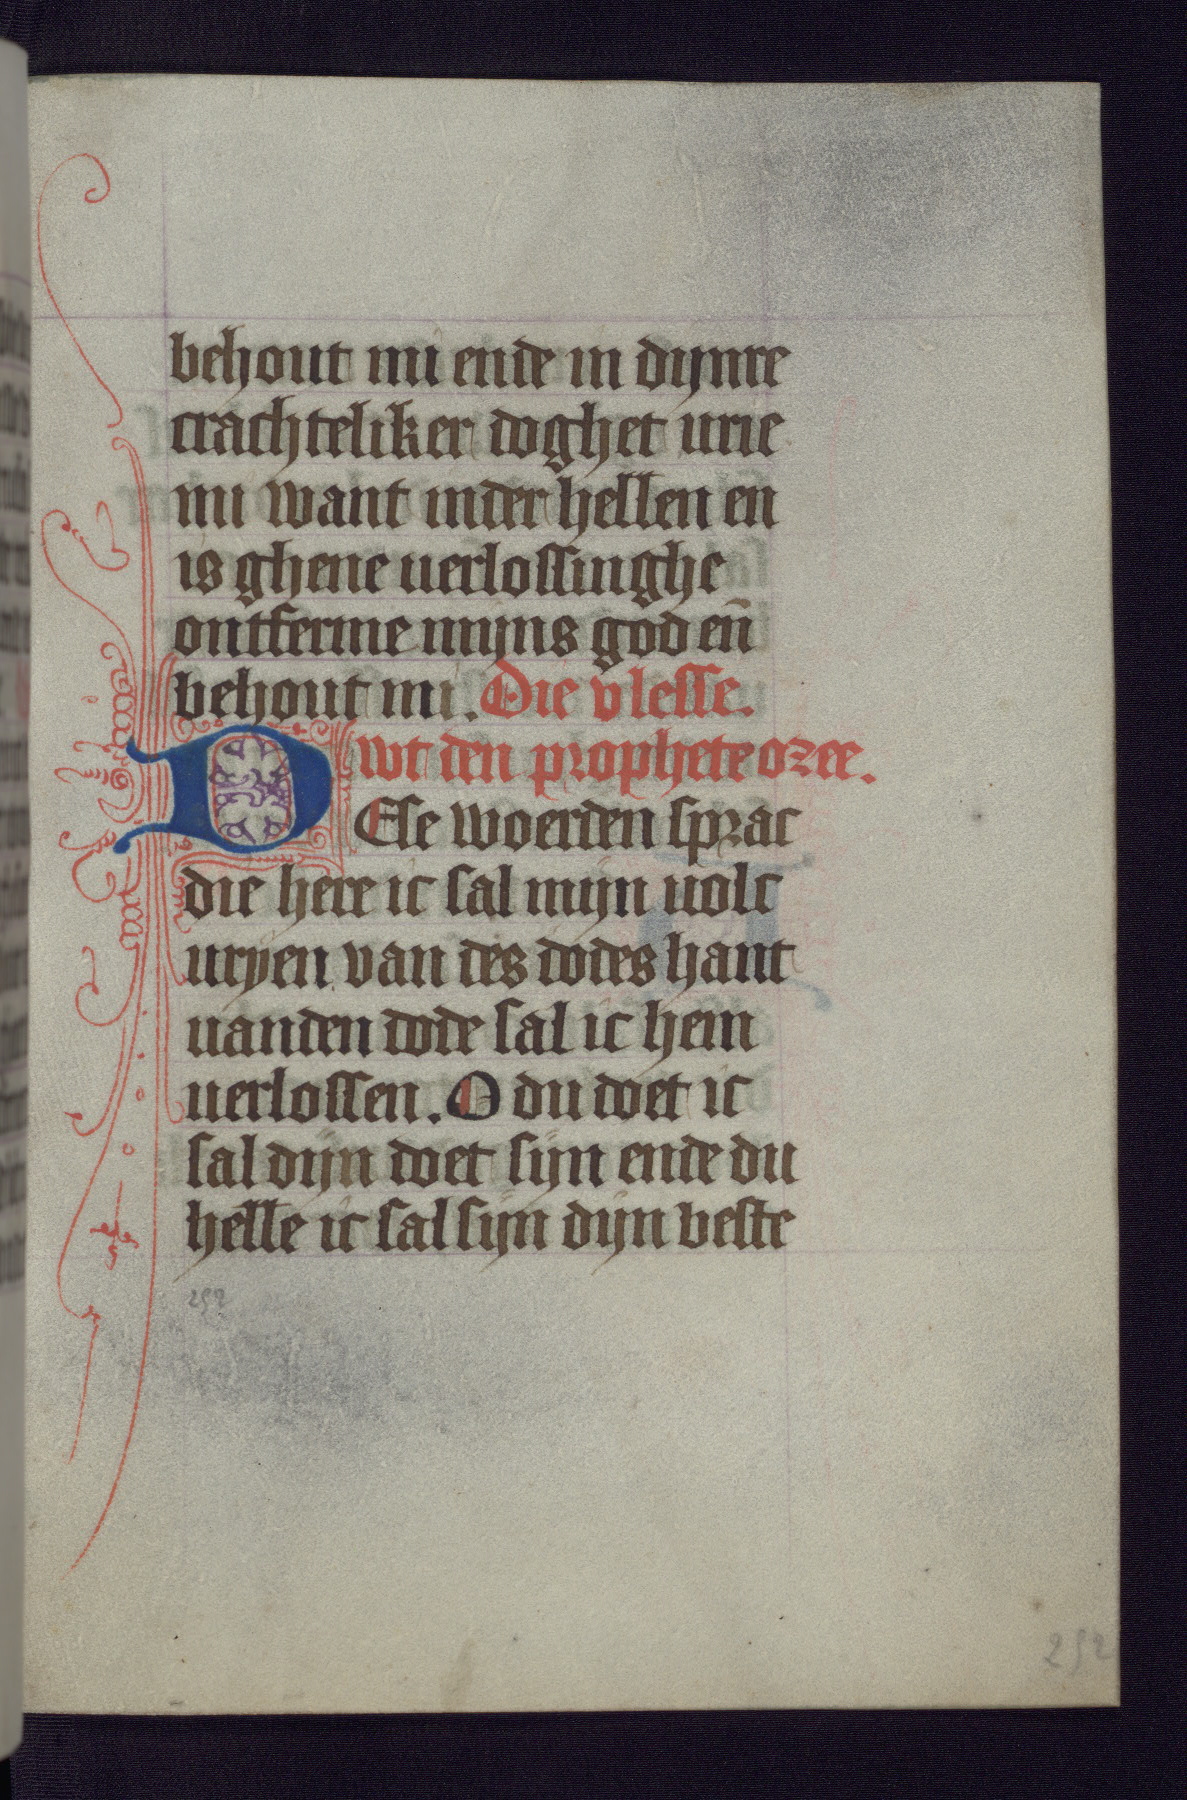 behout mi ende in dijnre
crachteliker doghet urie
mi want inder hellen en
is ghene uerlossinghe
ontferme mijns god en̄
behout mi. Die vlesse.
wt den prophete ozee.
DEse woerden sprac
die here ic sal mijn uolc
uryen van des dodes hant
uanden dode sal ic hem
uerlossen. O du doet ic
sal dijn doet sijn ende du
helle ic sal sijn dijn beste
252
252